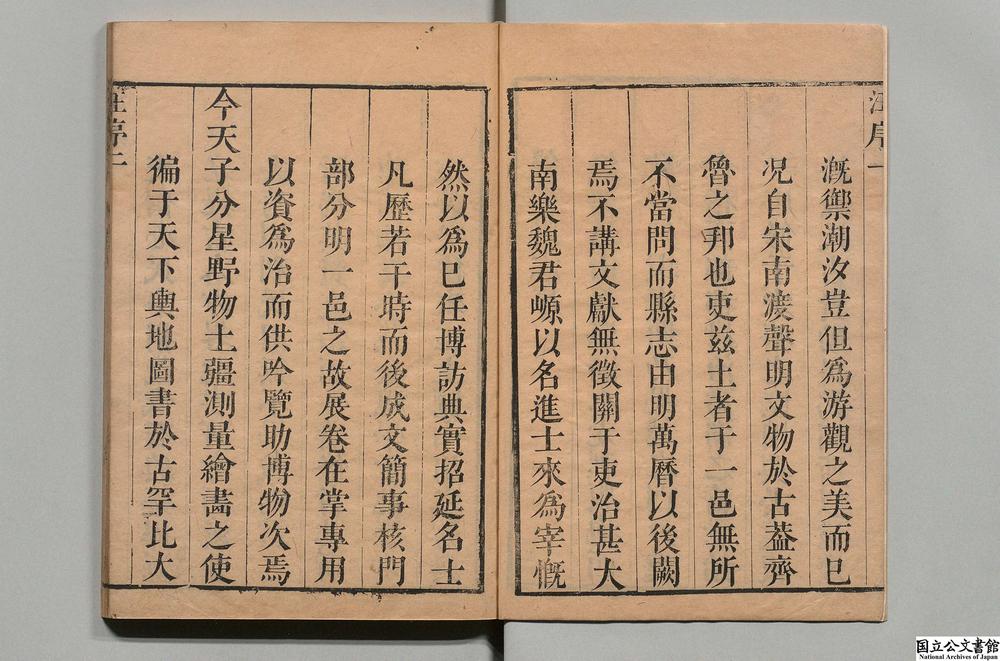 汪序一
漑禦潮汐豈但為游觀之美而已
况自宋南渡聲明文物於古葢齊
魯之邦也吏兹土者于一邑無所
不當問而縣志由明萬曆以後闕
焉不講文獻無徵關于吏治甚大
南樂魏君嵊以名進士來為宰慨
然以為已任博訪典實招延名士
凡歷若干時而後成文簡事核門
部分明一邑之故展卷在掌專用
以資為治而供吟覽助博物次焉
今天子分星野物土疆測量繪畵之使
徧于天下輿地圖書於古罕比大
汪序二
国立公文書館
National Archives of Japan